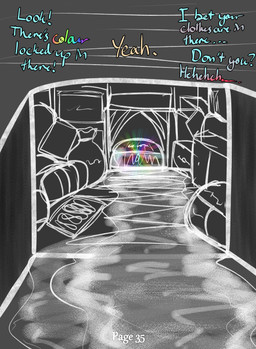 Look!
There's color
locked up in
there!
Yeah.
I bet your
clothes are in
there....
Don't you?
Heheheh...
Page 35